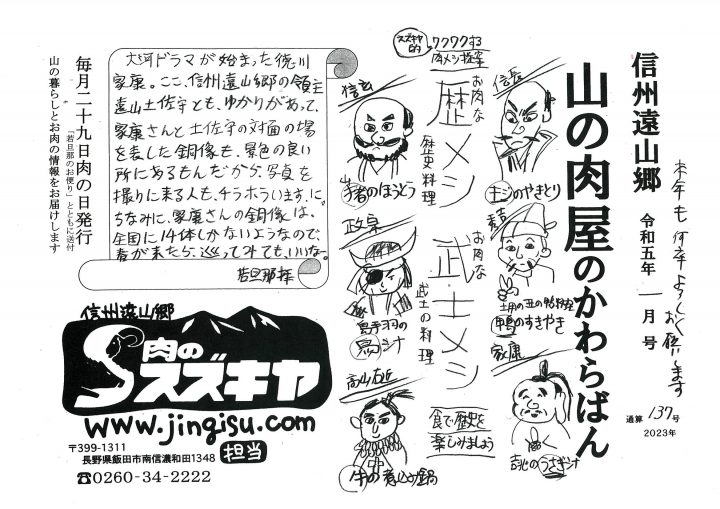 本年も何卒よろしくお願いします
信州遠山郷
令和五年 一月号
山の肉屋のかわらばん
通算 137号
2023年
スズキヤ的
ワクワクする
肉メシ提案
お肉な
歴メシ
歴史料理
お肉な
武士メシ
武士の料理
食で歴史を
楽しみましょう
信長
キジのやきとり
秀吉
鴨のすきやき
家康
吉兆のうさぎ汁
信玄
猪のほうとう
政宗
鳥手羽の
鳥シナ
高山右近
牛の煮込み鍋
大河ドラマが始まった徳川
家康。ここ、信州遠山郷の領主
遠山土佐守とも、ゆかりがあって、
家康さんと土佐守の対面の場
を表した銅像も、景色の良い
所にあるもんだから、写真を
撮りに来る人も、チラホラいます。に
ちなみに、家康さんの銅像は、
全国に14体しかないようなので、
春が来たら、巡ってみても、いいな。
若旦那拝
毎月二十九日肉の日発行
「若旦那のお便り」とともに送付
山の暮らしとお肉の情報をお届けします
信州遠山郷
肉の
スズキヤ
www.jingisu.com
〒399-1311
長野県飯田市南信濃和田1348
担当
☎0260-34-2222